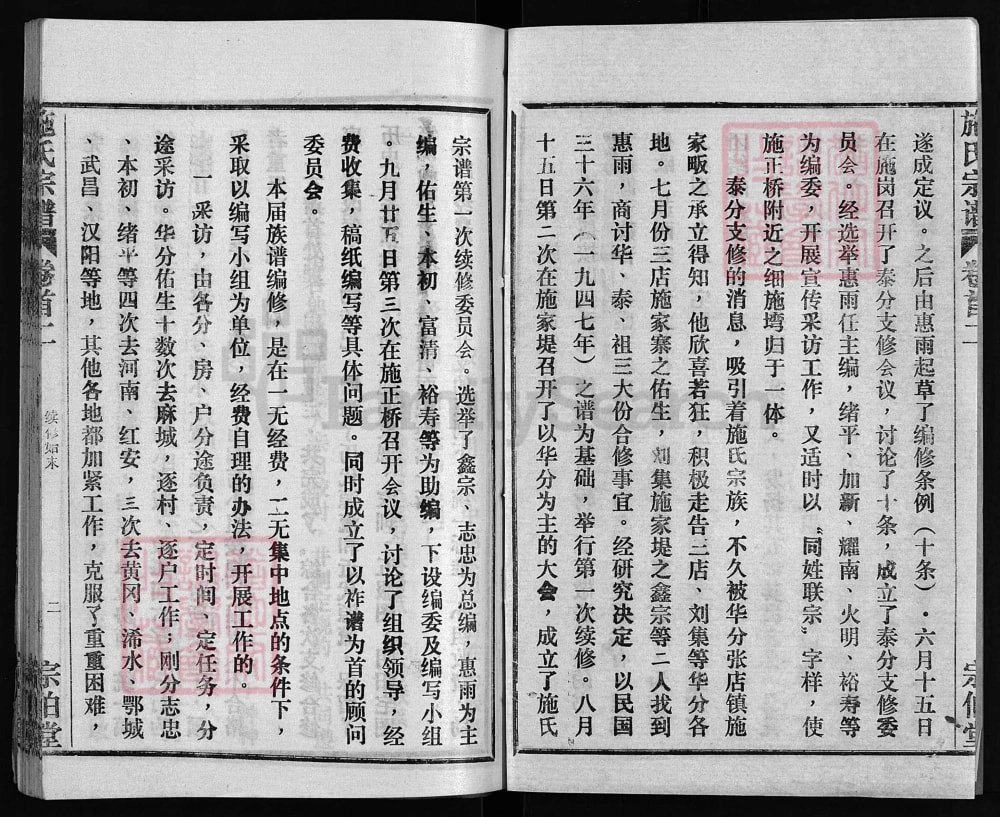 施氏宗谱
卷首一
宗伯堂
遂成定议。之后由惠雨起草了编修条例(十条)·六月十五日
在施岗召开了泰分支修会议,讨论了十条,成立了泰分支修委
员会。经选举惠雨任主编,绪平、加新、耀南、火明、裕寿等
为编委,开展宣传采访工作,又适时以“同姓联宗”字样,使
施正桥附近之细施塆归于一体。
泰分支修的消息,吸引着施氏宗族,不久被华分张店镇施
家畈之承立得知,他欣喜若狂,积极走告三店、刘集等华分各
地。七月份三店施家寨之佑生,刘集施家堤之鑫宗等二人找到
惠雨,商讨华、泰、祖三大份合修事宜。经研究决定,以民国
三十六年(一九四七年)之谱为基础,举行第一次续修。八月
十五日第二次在施家堤召开了以华分为主的大会,成立了施氏
宗谱第一次续修委员会。选举了鑫宗、志忠为总编,惠雨为主
编,佑生、本初、富清、裕寿等为助编,下设编委及编写小组
。九月廿五日第三次在施正桥召开会议,讨论了组织领导,经
费收集,稿纸编写等具体问题。同时成立了以祚谱为首的顾问
委员会。
本届族谱编修,是在一无经费,二无集中地点的条件下,
采取以编写小组为单位,经费自理的办法,开展工作的。
一 采访,由各分、房、户分途负责,定时间、定任务,分
途采访。华分佑生十数次去麻城,逐村、逐户工作,刚分志忠
、本初、绪平等四次去河南、红安,三次去黄冈、浠水、鄂城
、武昌、汉阳等地,其他各地都加紧工作,克服了重重困难,
施氏宗谱
卷首一
续修始末
二
宗伯堂
FamilySearch